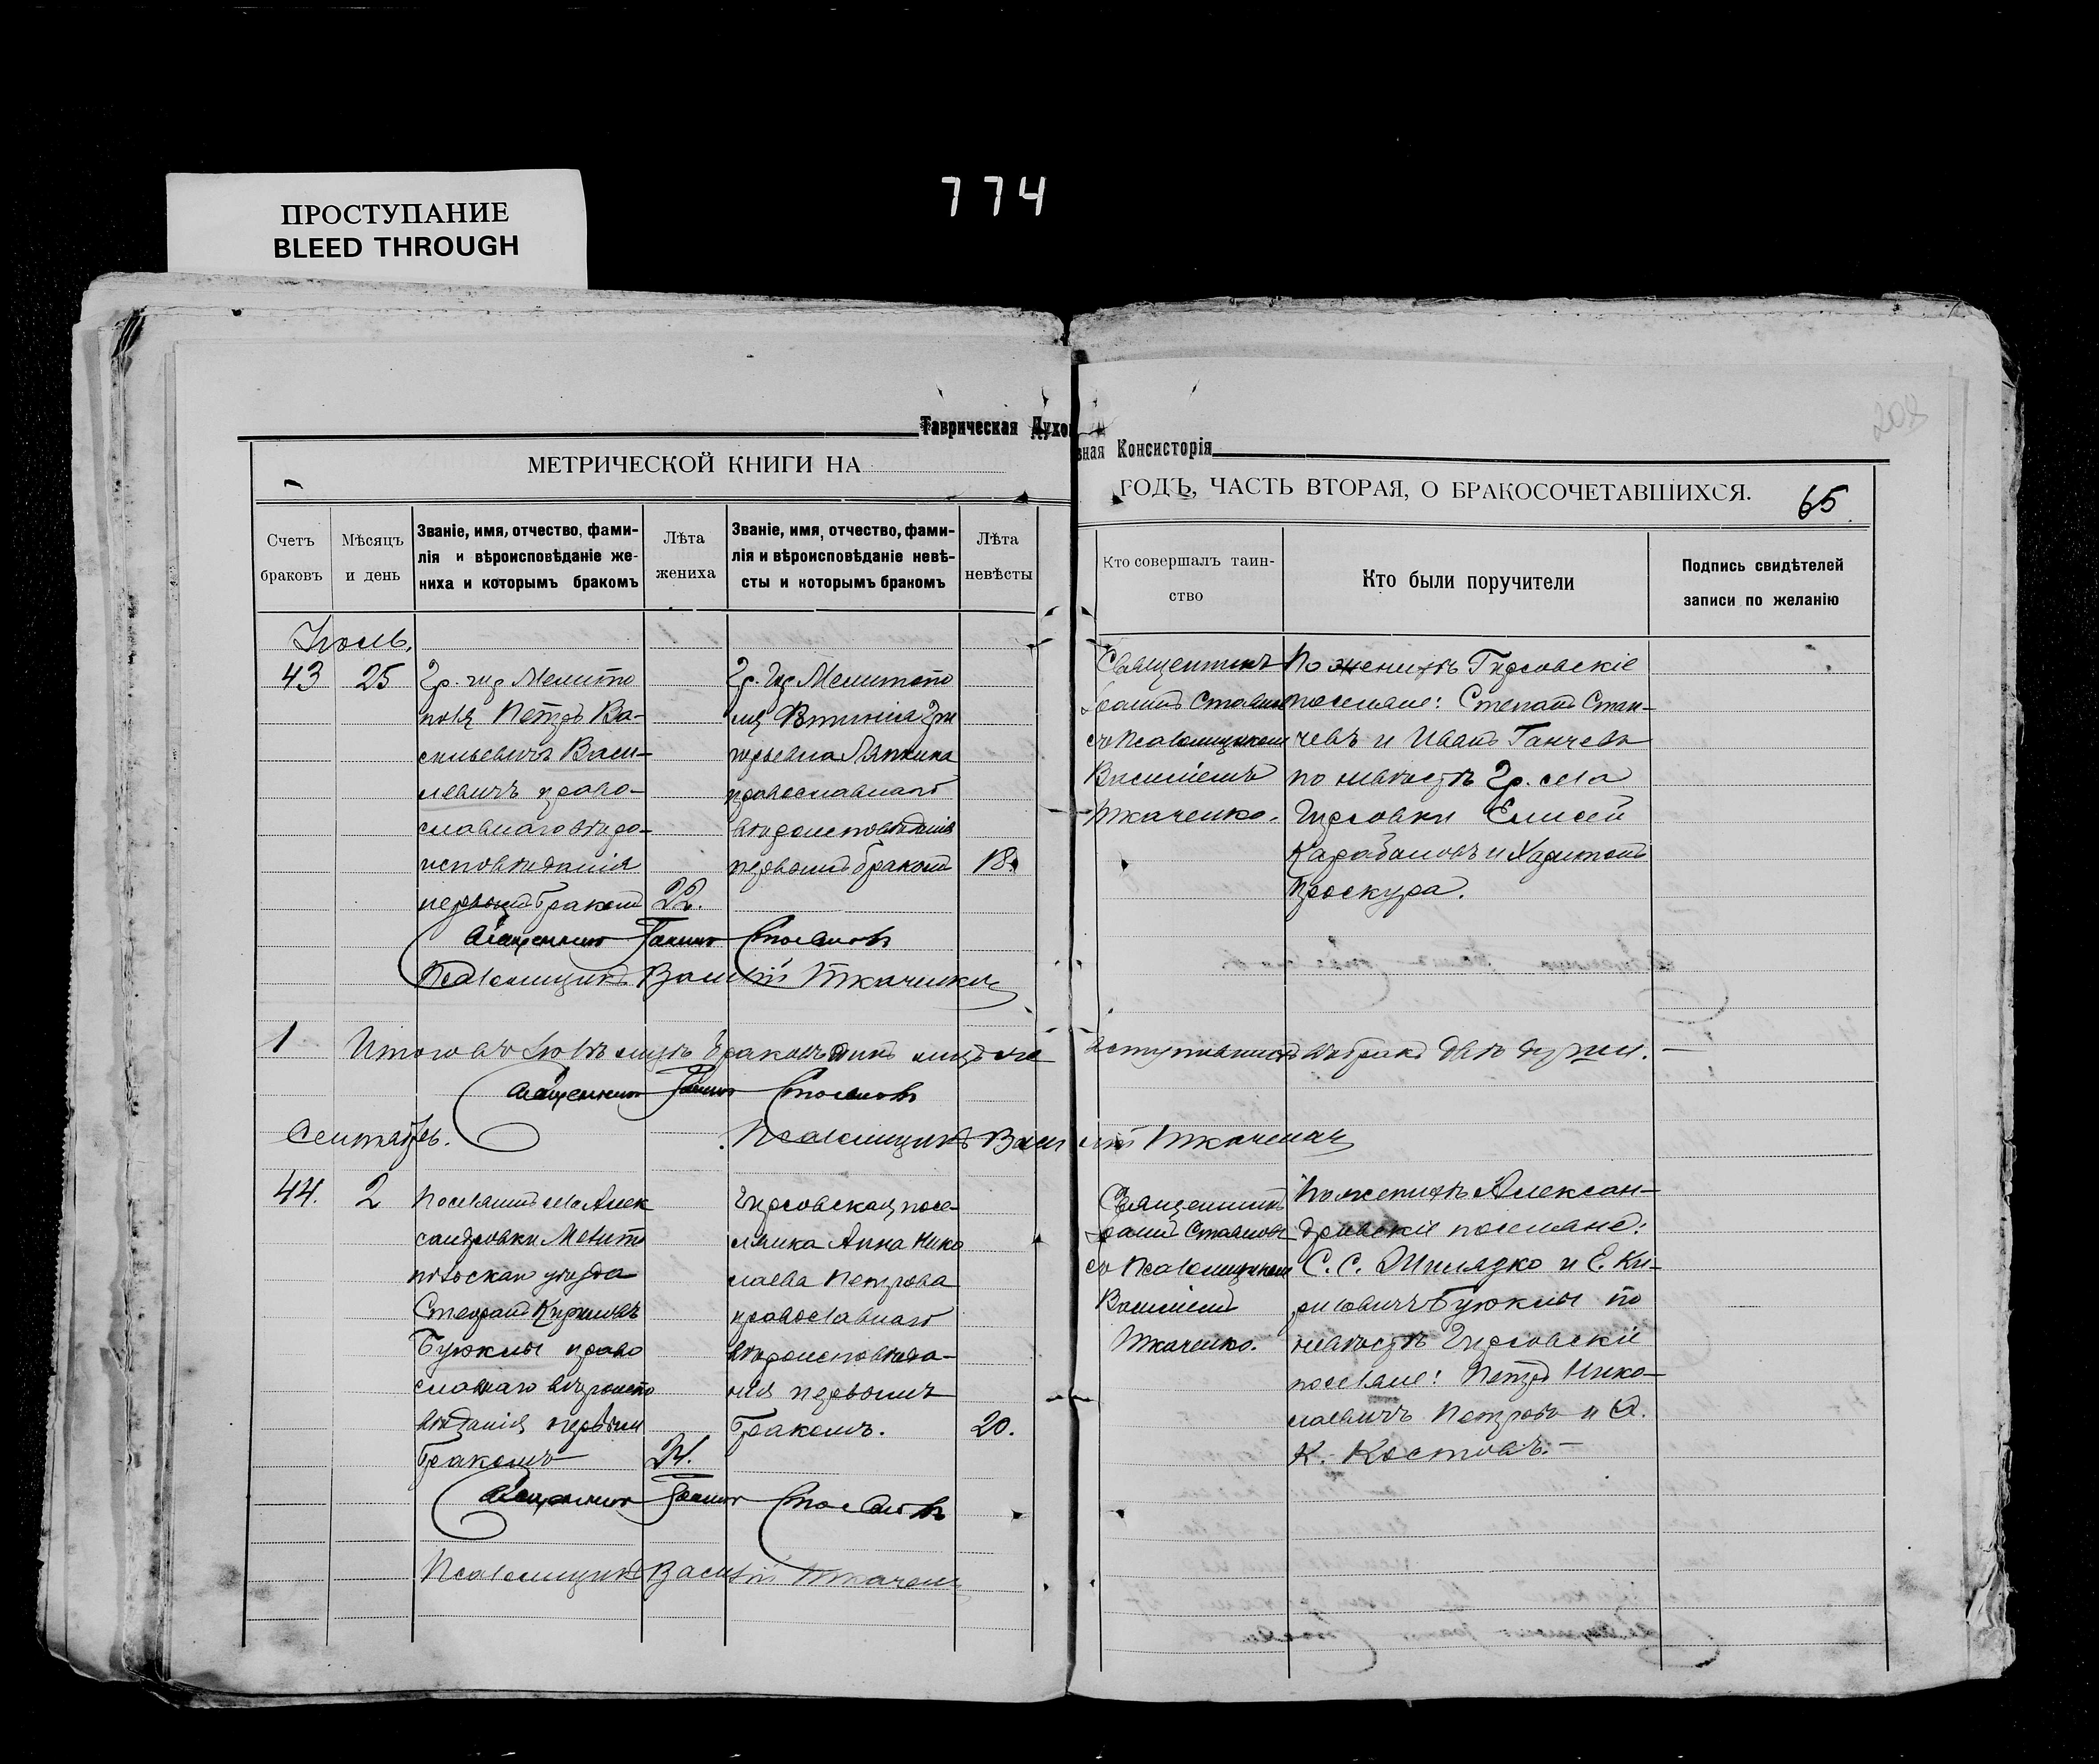 ПРОСТУПАНИЕ
BLEED THROUGH
774
208
Таврическая Духовная Консисторія
МЕТРИЧЕСКОЙ КНИГИ НА
ГОДЪ, ЧАСТЬ ВТОРАЯ, О БРАКОСОЧЕТАВШИХСЯ.
65
Счетъ браковъ
Мѣсяцъ и день
Званіе, имя, отчество, фами-
лія и вѣроисповѣданіе же-
ниха и которымъ бракомъ
Лѣта жениха
Званіе, имя, отчество, фами-
лія и вѣроисповѣданіе невѣ-
сты и которымъ бракомъ
Лѣта невѣсты
Кто совершалъ таин-
ство
Кто были поручители
Подпись свидѣтелей
записи по желанію
Іюль.
43
25
Гр. гор Мелито
поля Петръ Ва-
сильевичъ Васи-
левичъ право-
славнаго вѣро-
исповѣданія
первымъ бракомъ
22.
Гр. гор Мелитопо
ля Гри
горьевна Ляпкина
православнаго
вѣроисповѣданія
первымъ бракомъ
18.
Священникъ
Іоаннъ Стоянов
съ Псаломщикомъ
Василіемъ
Ткаченко.
По женихѣ Гирсовскіе
поселяне: Степанъ Стан-
чевъ и Иванъ Ганчевъ
по невѣстѣ Гр. села
Гирсовки Елисей
Карабановъ и Харитонъ
Проскура.
Священникъ Іоаннъ Стояновъ
Псаломщикъ Василій Ткаченко
1
Итого въ Іюлѣ мцѣ браковъ одинъ лицъ же
вступившихъ въ бракъ двѣ души.
Священникъ Іоаннъ Стояновъ
Сентябрь.
Псаломщикъ Василій Ткаченко
44.
2
Поселянинъ села Алек
сандровки Мелито
польскаго уѣзда
Стефанъ Кириловъ
Буюклы право
славнаго вѣроиспо
вѣданія первымъ
бракомъ
24.
Гирсовская посе-
лянка Анна Нико
лаева Петрова
православнаго
вѣроисповѣда-
нія первымъ
бракомъ.
20.
Священникъ
Іоаннъ Стояновъ
съ Псаломщикомъ
Василіемъ
Ткаченко.
По женихѣ Алексан-
дровскіе поселяне:
С. С. Шилядко и Е. Ки-
риловичъ Буюклы по
невѣстѣ Гирсовскіе
поселяне: Петръ Нико-
лаевичъ Петровъ и Ѳ.
К. Костовъ.
Священникъ Іоаннъ Стояновъ
Псаломщикъ Василій Ткаченко